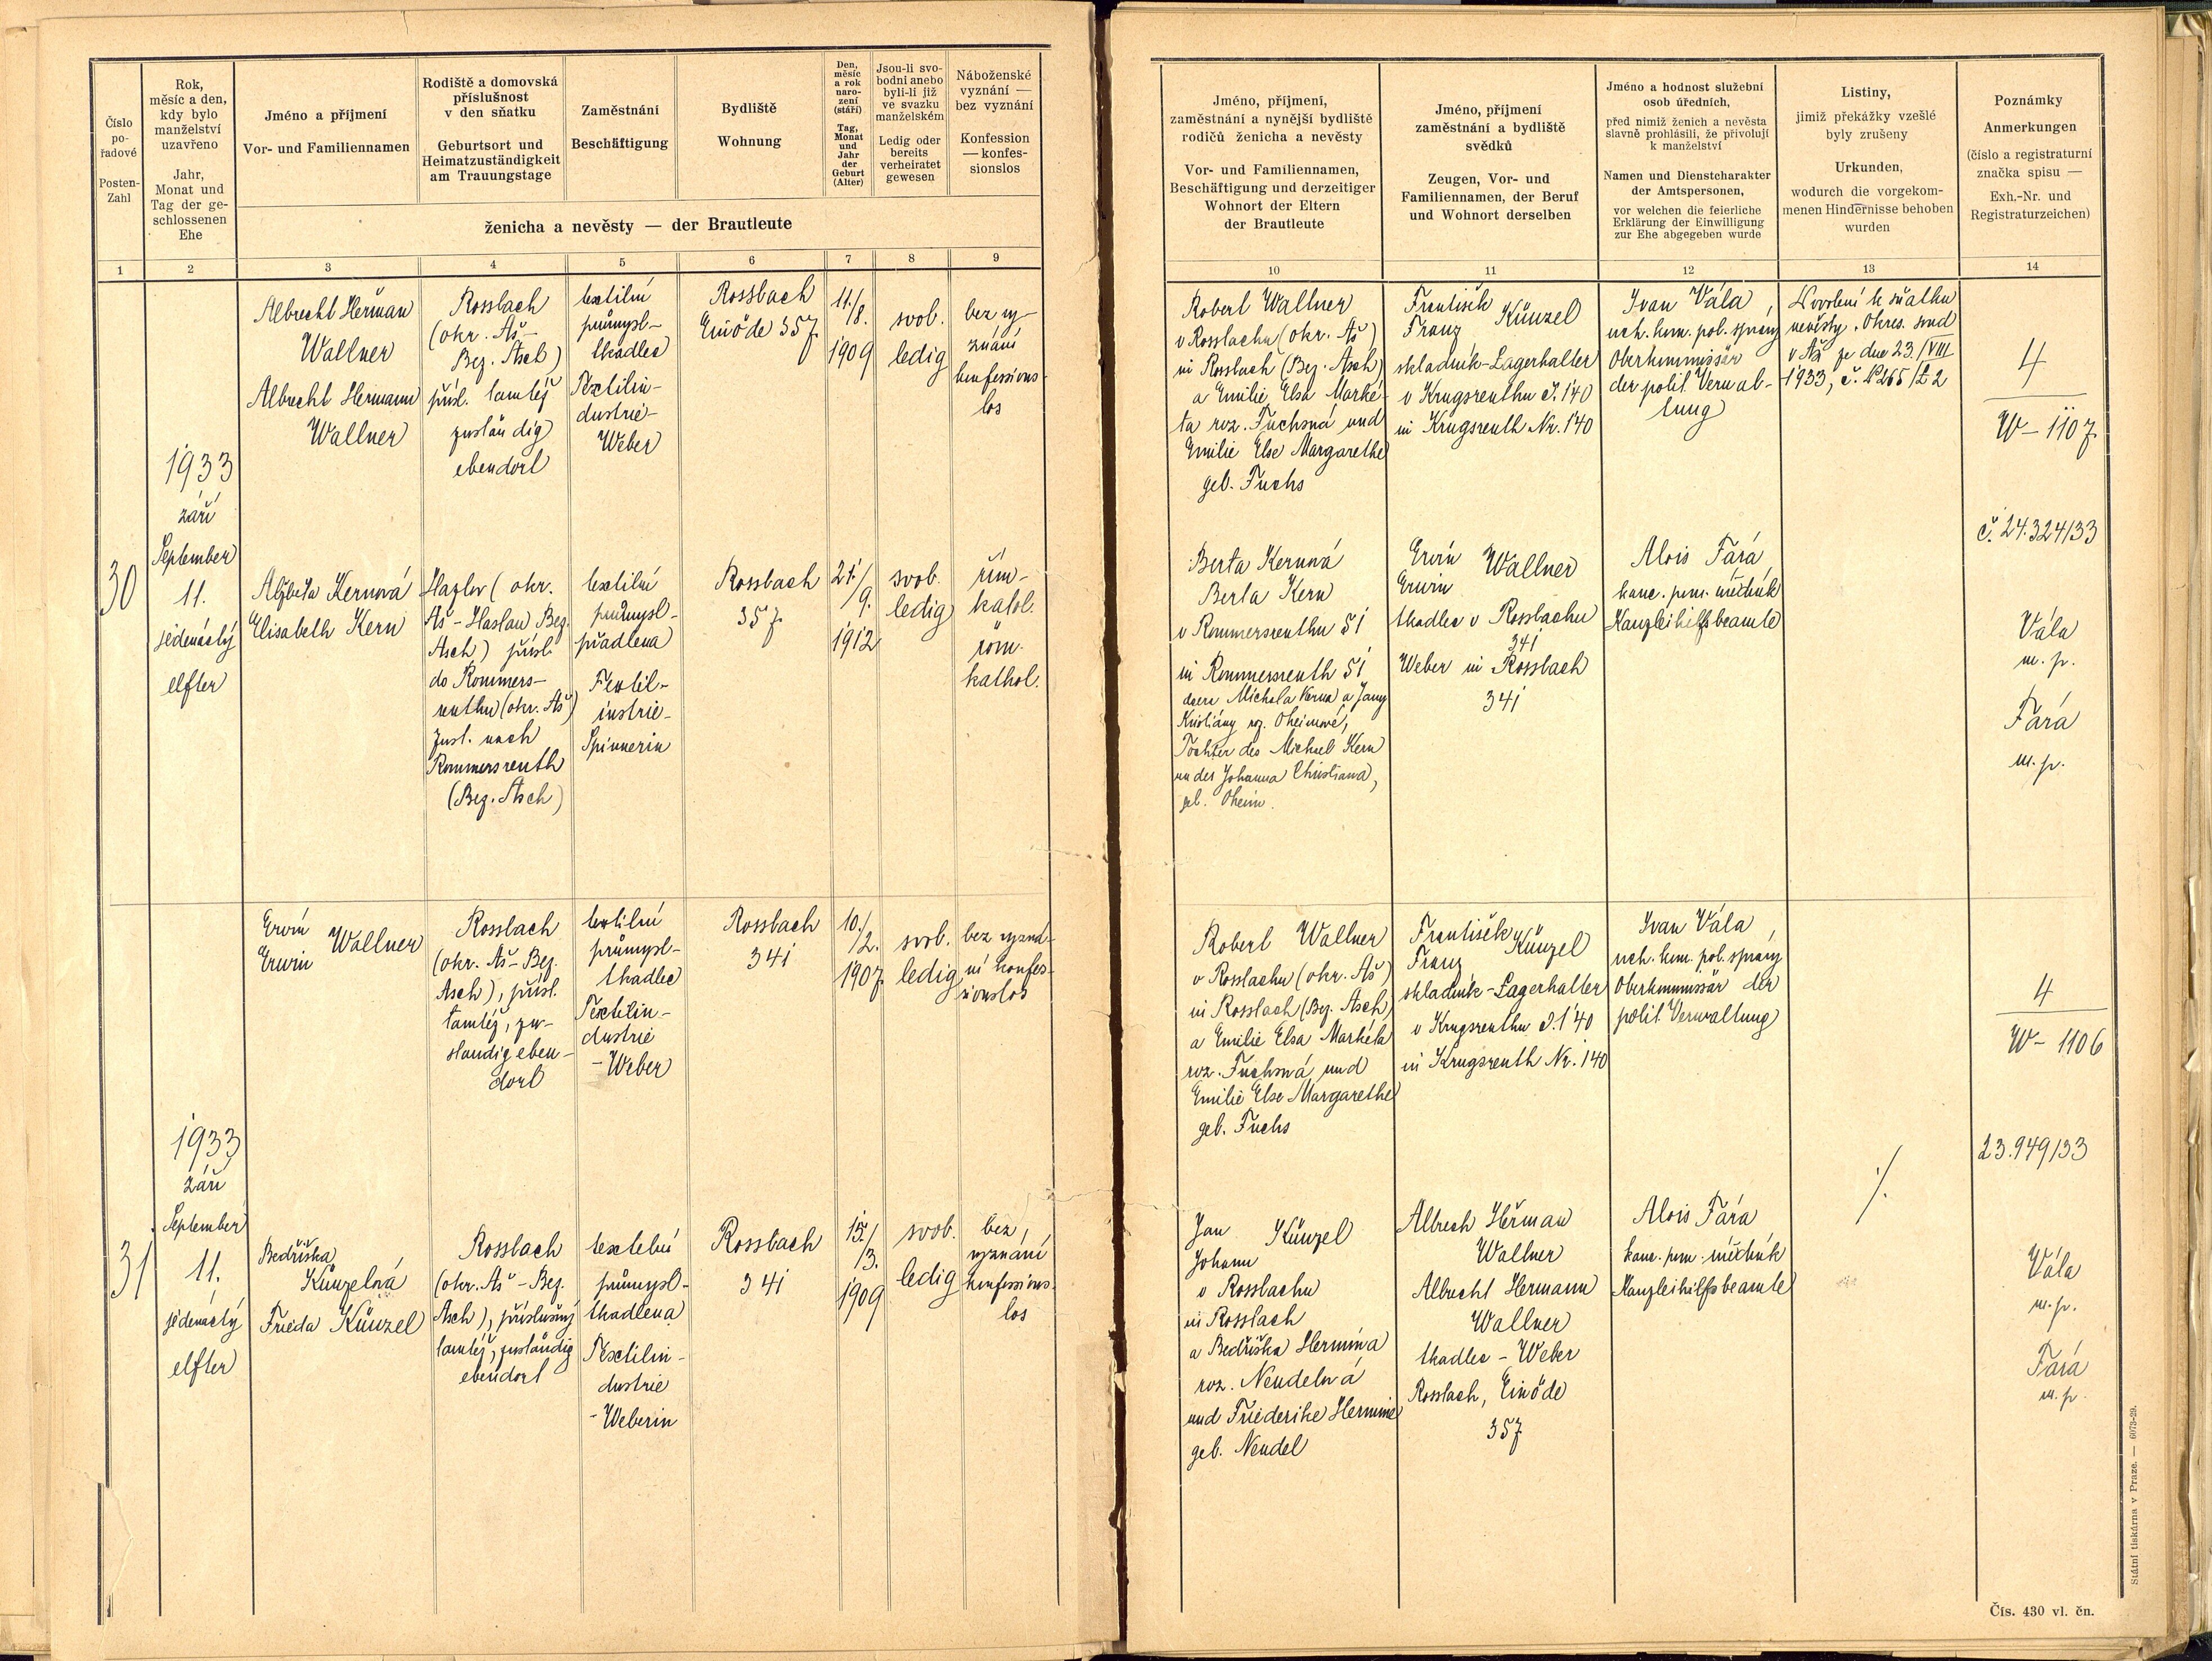 Číslo
po-
řadové
Posten-
Zahl
Rok,
měsíc a den,
kdy bylo
manželství
uzavřeno
Jahr,
Monat und
Tag der ge-
schlossenen
Ehe
Jméno a příjmení
Vor- und Familiennamen
Rodiště a domovská
příslušnost
v den sňatku
Geburtsort und
Heimatzuständigkeit
am Trauungstage
Zaměstnání
Beschäftigung
Bydliště
Wohnung
Den,
měsíc
a rok
naro-
zení
(stáří)
Tag,
Monat
und
Jahr
der
Geburt
(Alter)
Jsou-li svo-
bodni anebo
byli-li již
ve svazku
manželském
Ledig oder
bereits
verheiratet
gewesen
Náboženské
vyznání —
bez vyznání
Konfession
— konfes-
sionslos
ženicha a nevěsty — der Brautleute
1 2 3 4 5 6 7 8 9
30
1933
září
September
11.
jedenáctý
elfter
Albrecht Heřman
Wallner
Albrecht Hermann
Wallner
Rossbach
(okr. Aš-
Bez. Asch)
přísl. tamtéž
zuständig
ebendort
textilní
průmysl-
tkadlec
Textilin-
dustrie-
Weber
Rossbach
Einöde 357
11./
8.
1909
svob.
ledig
bez vy-
znání
konfessions-
los
Alžběta Kernová
Elisabeth Kern
Hazlov (okr.
Aš-Haslau Bez.
Asch) přísl.
do Rommers-
reuthu (okr. Aš)
zust. nach
Rommersreuth
(Bez. Asch)
textilní
průmysl-
přadlena
Textil-
instrie-
Spinnerin
Rossbach
357
21./
9.
1912
svob.
ledig
řím-
katol.
röm.
kathol.
31
1933
září
September
11.
jedenáctý
elfter
Ervín
Erwin Wallner
Rossbach
(okr. Aš-Bez.
Asch), přísl.
tamtéž, zu-
ständig eben-
dort
textilní
průmysl-
tkadlec
Textilin-
dustrie
-Weber
Rossbach
341
10./
2.
1907
svob.
ledig
bez vyzná-
ní konfes-
sionslos
Bedřiška
Künzelová
Frieda Künzel
Rossbach
(okr. Aš-Bez.
Asch), příslušný
tamtéž, zuständig
ebendort
textilní
průmysl-
tkadlena
Textilin-
dustrie
-Weberin
Rossbach
341
15./
3.
1909
svob.
ledig
bez
vyznání
konfessions-
los
Jméno, příjmení,
zaměstnání a nynější bydliště
rodičů ženicha a nevěsty
Vor- und Familiennamen,
Beschäftigung und derzeitiger
Wohnort der Eltern
der Brautleute
Jméno, příjmení
zaměstnání a bydliště
svědků
Zeugen, Vor- und
Familiennamen, der Beruf
und Wohnort derselben
Jméno a hodnost služební
osob úředních,
před nimiž ženich a nevěsta
slavně prohlásili, že přivolují
k manželství
Namen und Dienstcharakter
der Amtspersonen,
vor welchen die feierliche
Erklärung der Einwilligung
zur Ehe abgegeben wurde
Listiny,
jimiž překážky vzešlé
byly zrušeny
Urkunden,
wodurch die vorgekom-
menen Hindernisse behoben
wurden
Poznámky
Anmerkungen
(číslo a registraturní
značka spisu —
Exh.-Nr. und
Registraturzeichen)
10 11 12 13 14
Robert Wallner
v Rossbachu (okr. Aš)
in Rossbach (Bez. Asch)
a Emilie Elsa Marké-
ta roz. Fuchsná und
Emilie Else Margarethe
geb. Fuchs
František
Franz Künzel
skladník-Lagerhalter
v Krugsreuthu č. 140
in Krugsreuth Nr. 140
Ivan Vála,
vrch. kom. pol. správy
Oberkommissär
der polit. Verwal-
tung
Dovolení k sňatku
nevěsty. Okres. soud
v Aši ze dne 23./VIII
1933, č. P 265/
4
W-1107
č. 24.324/33
Berta Kernová
Berta Kern
v Rommersreuthu 51
in Rommersreuth 51
dcera Michala Kerna a Jany
Kristiány roz. Oheimové,
Tochter des Michael Kern
u. der Johanna Christiana,
geb. Oheim.
Ervín
Erwin Wallner
tkadlec v Rossbachu
341
Weber in Rossbach
341
Alois Fára
kanc. pom. úředník
Kanzleihilfsbeamte
Vála
m. p.
Fára
m. p.
Robert Wallner
v Rossbachu (okr. Aš)
in Rossbach (Bez. Asch)
a Emilie Elsa Markéta
roz. Fuchsná und
Emilie Else Margarethe
geb. Fuchs
František
Franz Künzel
skladník-Lagerhalter
v Krugsreuthu č. 140
in Krugsreuth Nr. 140
Ivan Vála,
vrch. kom. pol. správy
Oberkommissär der
polit. Verwaltung
4
W-1106
23.949/33
Jan
Johann Künzel
v Rossbachu
in Rossbach
a Bedřiška Hermína
roz. Neudelová
und Friederike Hermine
geb. Neudel
Albrech Heřman
Wallner
Albrecht Hermann
Wallner
tkadlec - Weber
Rossbach, Einöde
357
Alois Fára
kanc. pom. úředník
Kanzleihilfsbeamte
./.
Vála
m. p.
Fára
m. p.
Státní tiskárna v Praze. — 6073-29.
Čís. 430 vl. čn.